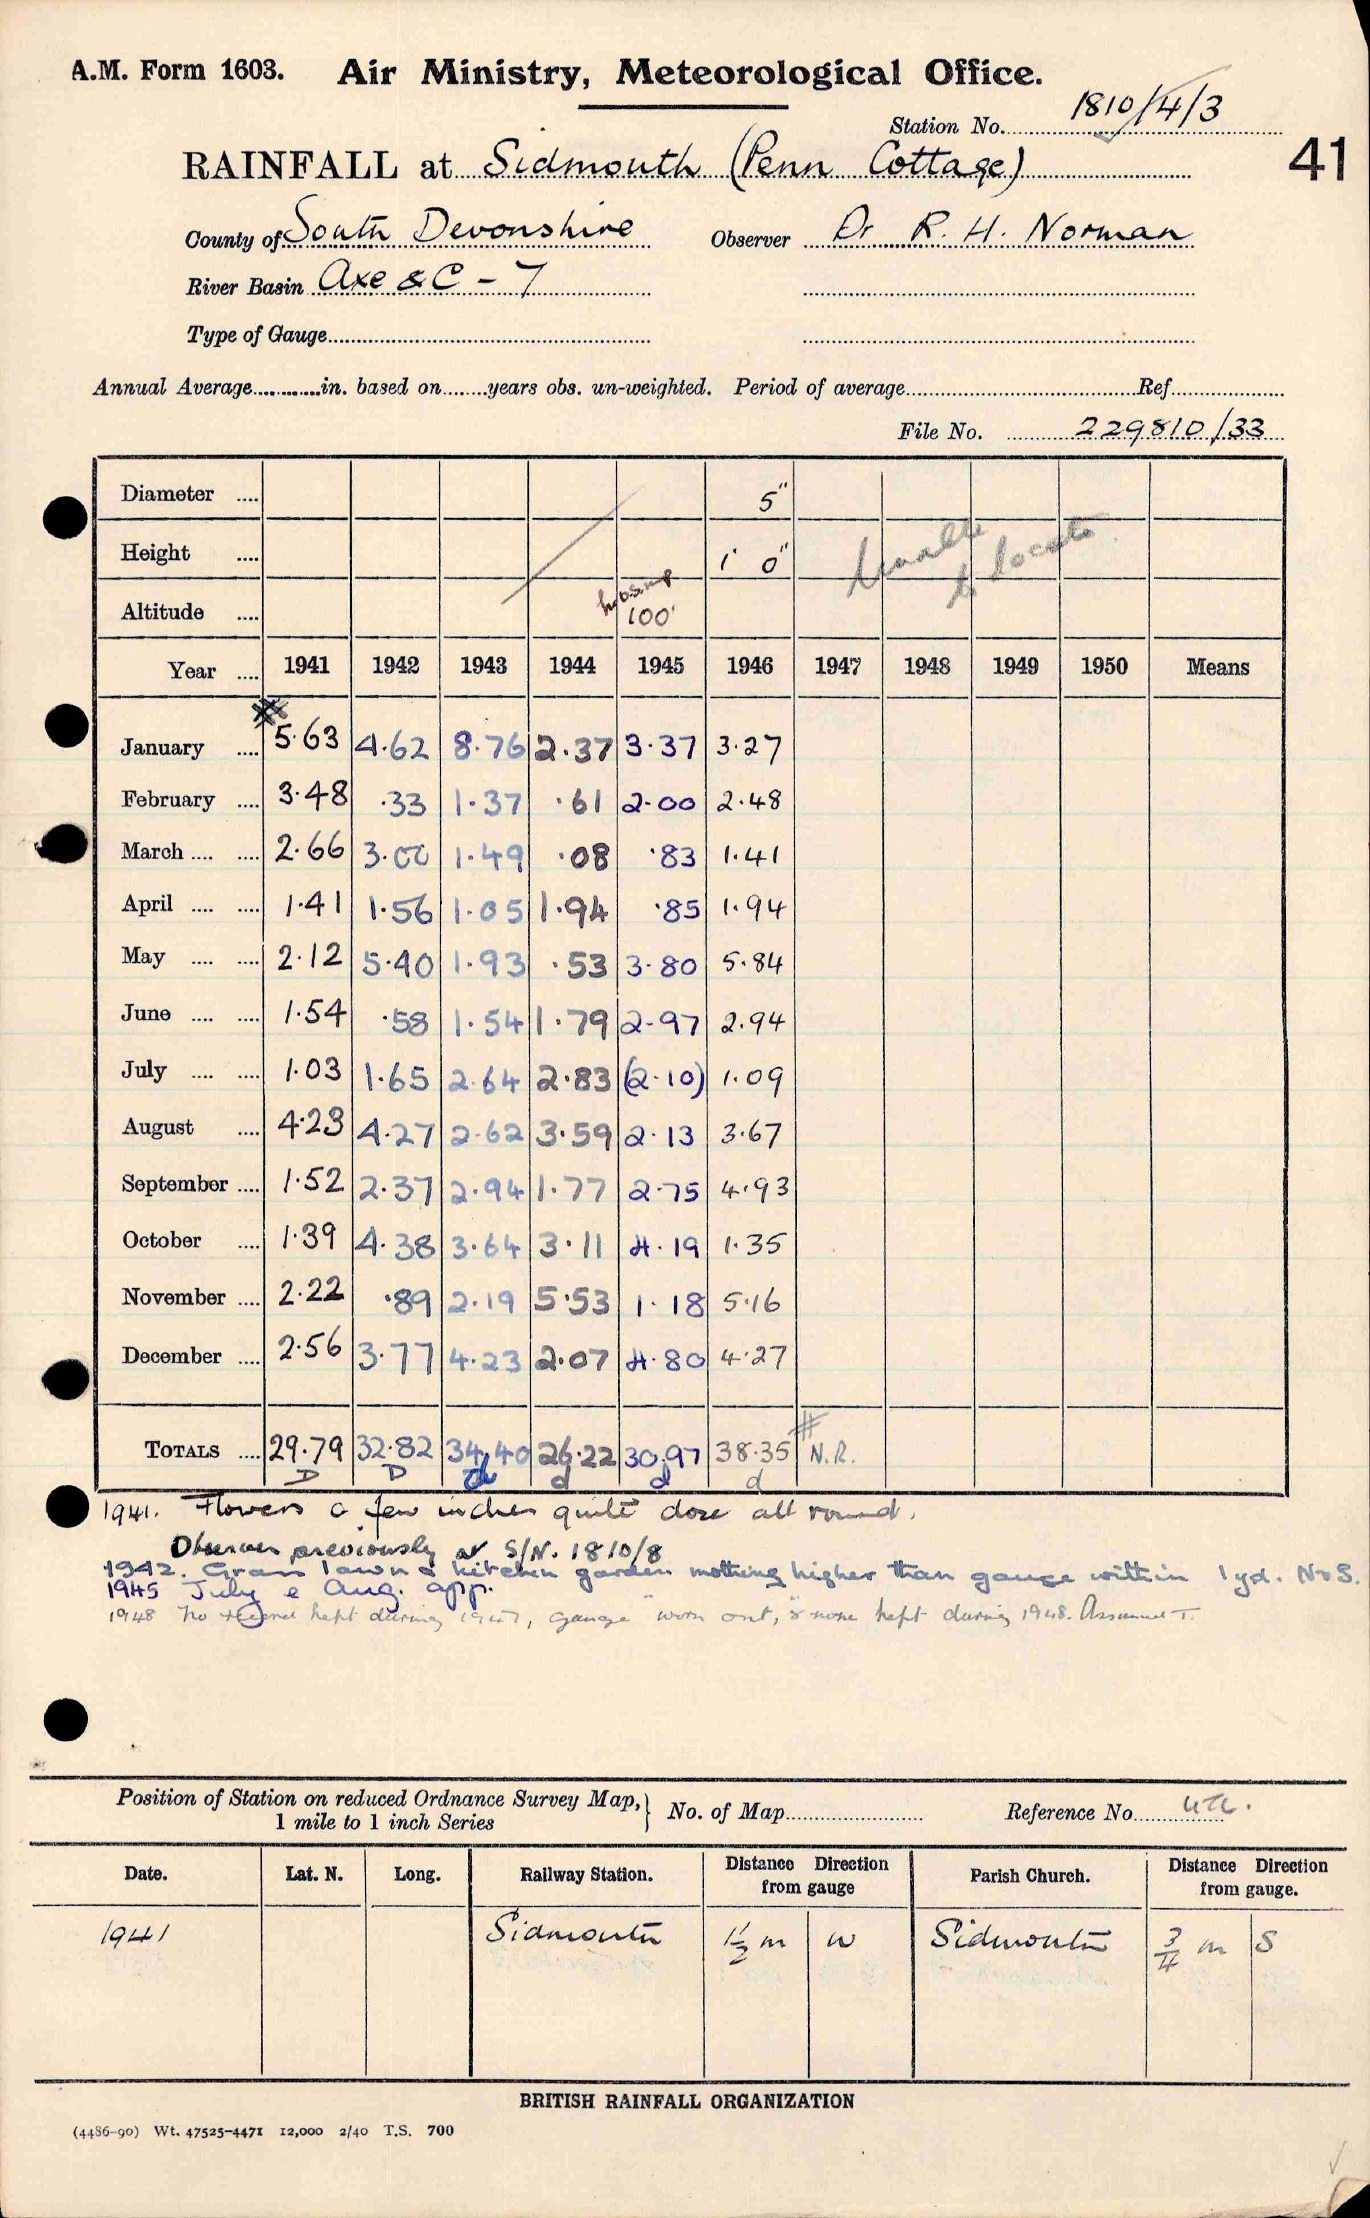 A.M. Form 1603. Air Ministry, Meteorological Office.
Station No. 1810/4/3
41
RAINFALL at Sidmouth (Penn Cottage)
County of South Devonshire Observer Dr R. H. Norman
River Basin Axe &C - 7
Type of Gauge
Annual Average in. based on years obs. un-weighted. Period of average Ref
File No. 229810/33
Diameter 5"
Height 1' 0" Unable to locate
Altitude 100'
Year 1941 1942 1943 1944 1945 1946 1947 1948 1949 1950 Means
January 5.63 4.62 8.76 2.37 3.37 3.27
February 3.48 .33 1.37 .61 2.00 2.48
March 2.66 3.00 1.49 .08 .83 1.41
April 1.41 1.56 1.05 1.94 .85 1.94
May 2.12 5.40 1.93 .53 3.80 5.84
June 1.54 .58 1.54 1.79 2.97 2.94
July 1.03 1.65 2.64 2.83 (2.10) 1.09
August 4.23 4.27 2.62 3.59 2.13 3.67
September 1.52 2.37 2.94 1.77 2.75 4.93
October 1.39 4.38 3.64 3.11 4.19 1.35
November 2.22 .89 2.19 5.53 1.18 5.16
December 2.56 3.77 4.23 2.07 4.80 4.27
TOTALS 29.79 32.82 34.40 26.22 30.97 38.35 N.R.
D D d d d
1941. Flowers a few inches quite close all round.
Observer previously at S/N. 1810/8
1942. Grass lawn & kitchen garden nothing higher than gauge within 1 yd. N & S.
1945 July & Aug. app.
1948 No record kept during 1947, gauge "worn out," & none kept during 1948. Assumed T.
Position of Station on reduced Ordnance Survey Map, 1 mile to 1 inch Series } No. of Map Reference No.
Date. Lat. N. Long. Railway Station. Distance Direction from gauge Parish Church. Distance Direction from gauge.
1941 Sidmouth 1½ m W Sidmouth ¾ m S
BRITISH RAINFALL ORGANIZATION
(4486-90) Wt. 47525-4471 12,000 2/40 T.S. 700